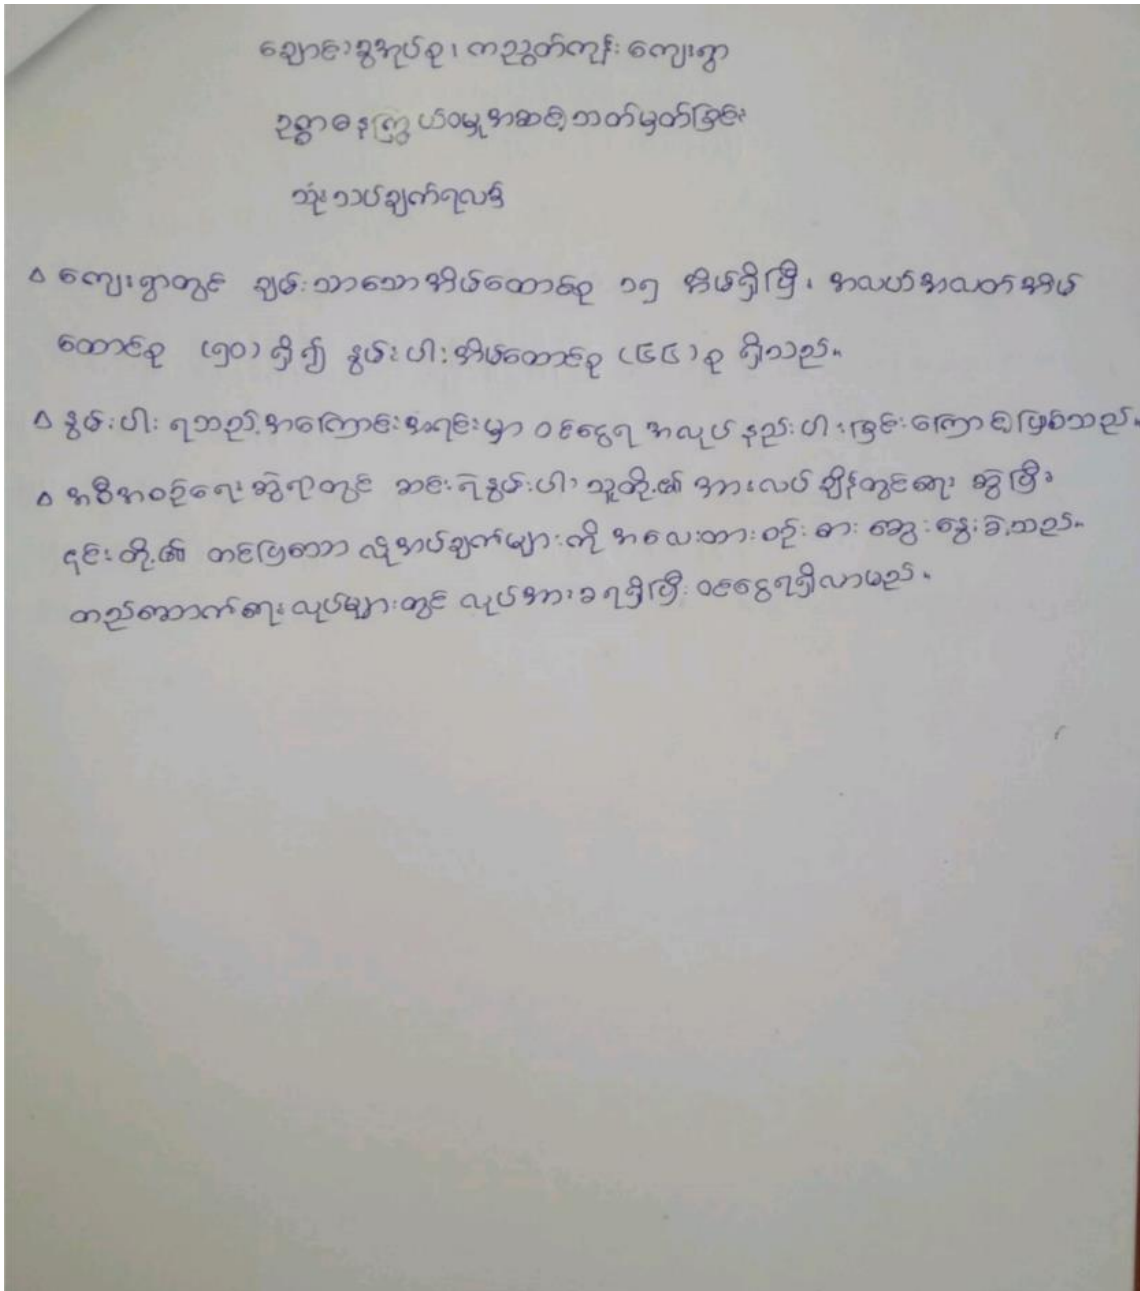 ချောင်းခွအုပ်စု၊ ကညွတ်ကုန်း ကျေးရွာ
ဥစ္စာဓနကြွယ်ဝမှုအဆင့်သတ်မှတ်ခြင်း
သုံးသပ်ချက်ရလဒ်
∆ ကျေးရွာတွင် ချမ်းသာသောအိမ်ထောင်စု ၁၅ အိမ်ရှိပြီး အလယ်အလတ်အိမ်
ထောင်စု (၅၀) ရှိ၍ နွမ်းပါးအိမ်ထောင်စု (၆၄) စု ရှိသည်။
∆ နွမ်းပါးရသည့်အကြောင်းအရင်းမှာ ဝင်ငွေရအလုပ်နည်းပါးခြင်းကြောင့်ဖြစ်သည်။
∆ အစီအစဉ်ရေးဆွဲရာတွင် ဆင်းရဲနွမ်းပါးသူတို့၏ အားလပ်ချိန်တွင်ရေးဆွဲပြီး
၎င်းတို့၏ တင်ပြသောလိုအပ်ချက်များကို အလေးထားစဉ်းစားဆွေးနွေးခဲ့သည်။
တည်ဆောက်ရေးလုပ်များတွင် လုပ်အားခရရှိပြီး ဝင်ငွေရရှိလာမည်။